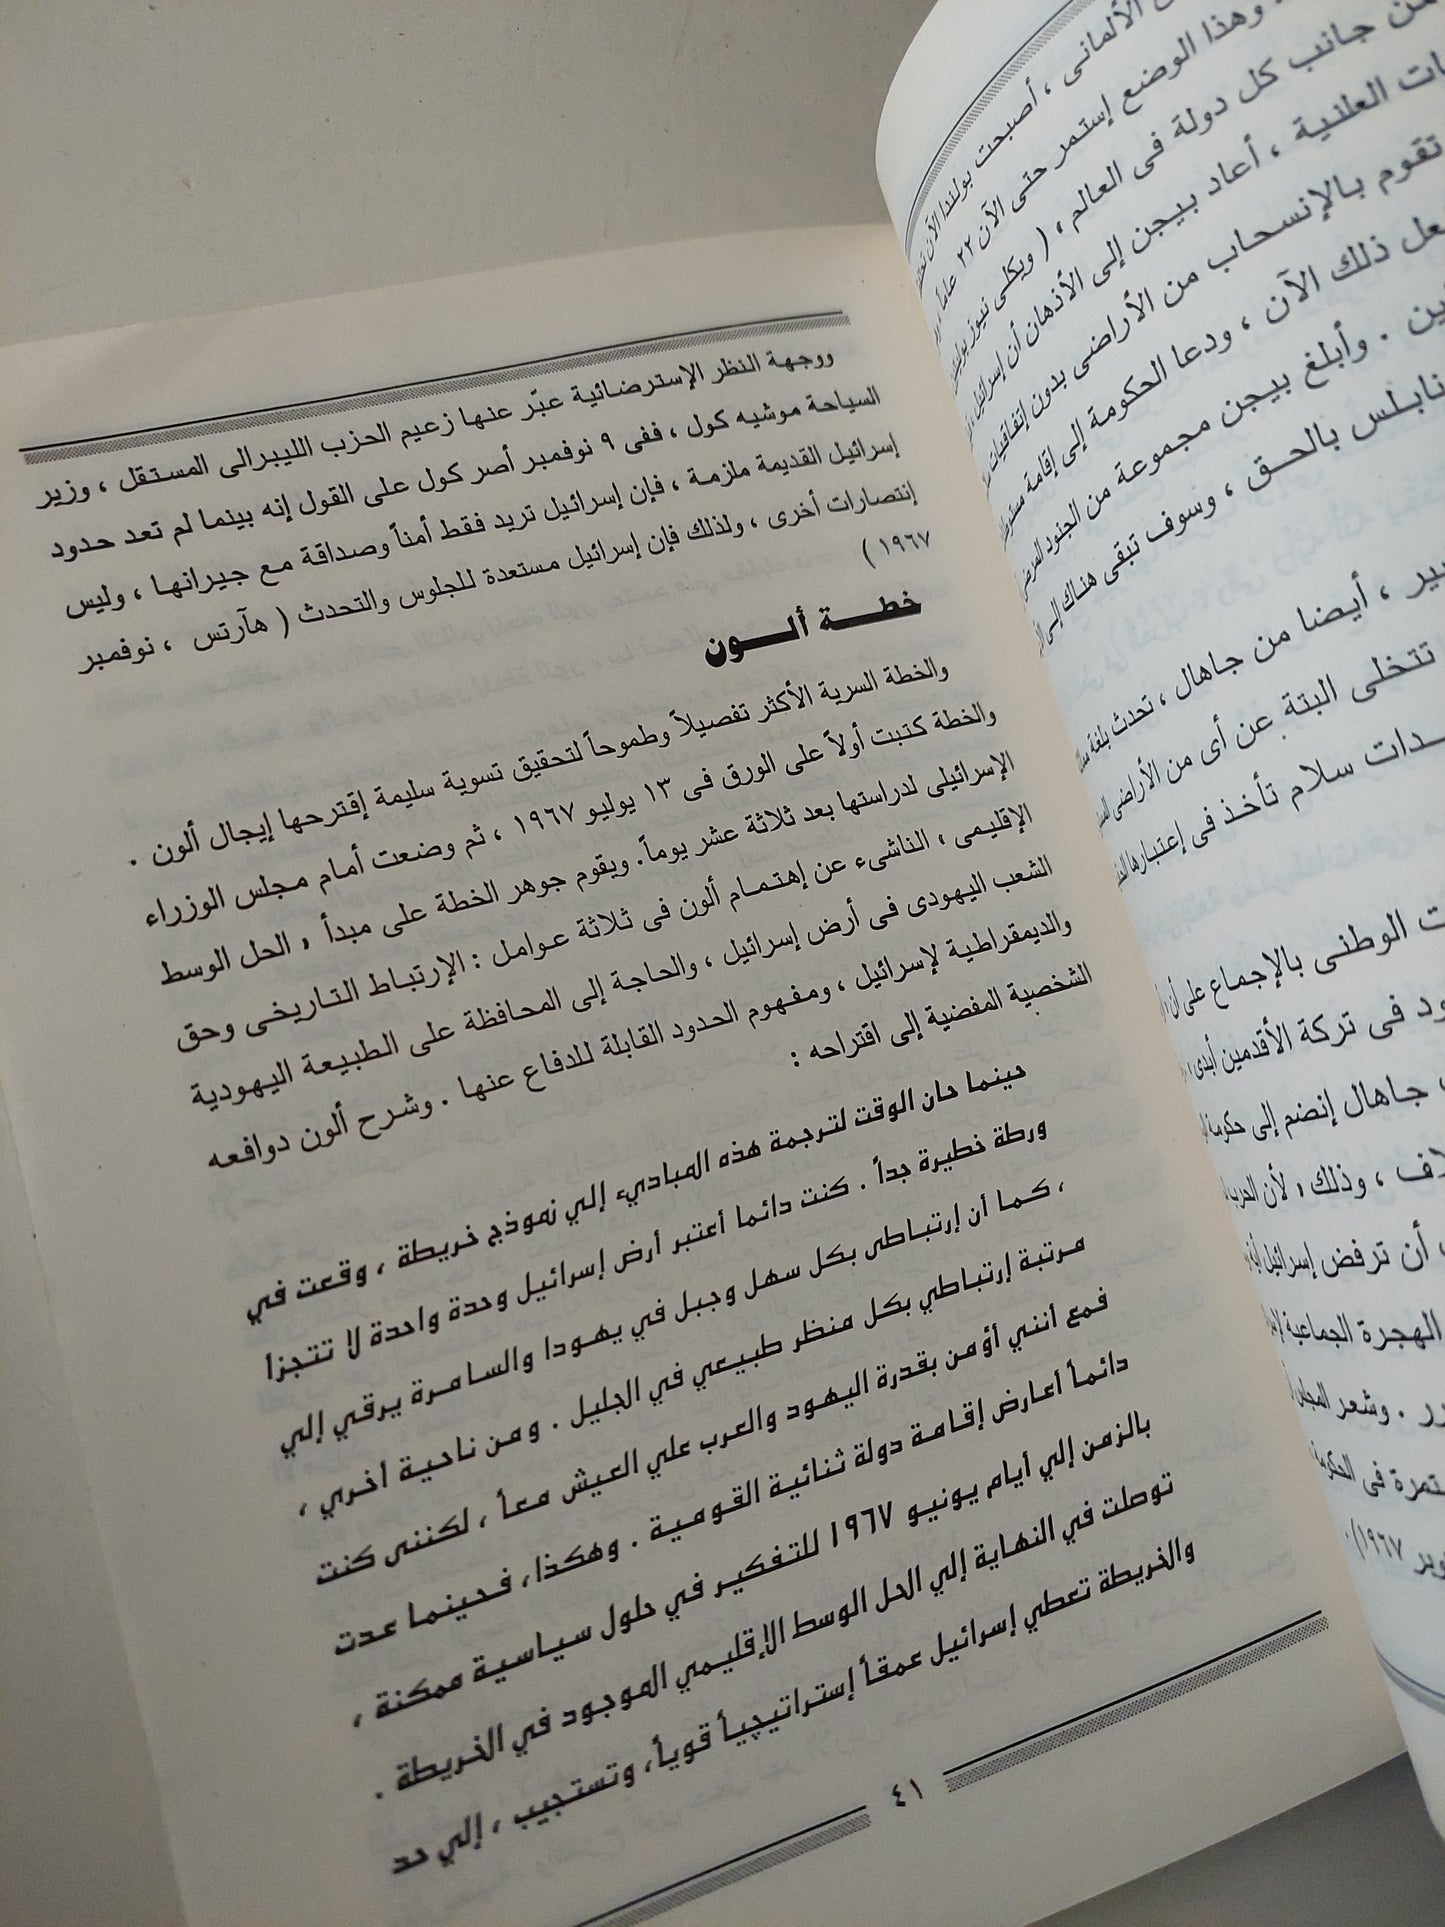 ووجهة النظر الإسترضائية عبّر عنها زعيم الحزب الليبرالى المستقل ، وزير
السياحة موشيه كول ، ففى ٩ نوفمبر أصر كول على القول إنه بينما لم تعد حدود
إسرائيل القديمة ملزمة ، فإن إسرائيل تريد فقط أمناً وصداقة مع جيرانها ، وليس
إنتصارات أخرى ، ولذلك فإن إسرائيل مستعدة للجلوس والتحدث ( هآرتس ، نوفمبر
١٩٦٧ )
خطة ألون
والخطة السرية الأكثر تفصيلاً وطموحاً لتحقيق تسوية سليمة إقترحها إيجال ألون .
والخطة كتبت أولاً على الورق فى ١٣ يوليو ١٩٦٧ ، ثم وضعت أمام مجلس الوزراء
الإسرائيلى لدراستها بعد ثلاثة عشر يوماً. ويقوم جوهر الخطة على مبدأ « الحل الوسط
الإقليمى ، الناشىء عن إهتمام ألون فى ثلاثة عوامل : الإرتباط التاريخى وحق
الشعب اليهودى فى أرض إسرائيل ، والحاجة إلى المحافظة على الطبيعة اليهودية
والديمقراطية لإسرائيل ، ومفهوم الحدود القابلة للدفاع عنها . وشرح ألون دوافعه
الشخصية المفضية إلى اقتراحه :
حينما حان الوقت لترجمة هذه المباديء إلي نموذج خريطة ، وقعت في
ورطة خطيرة جداً . كنت دائما أعتبر أرض إسرائيل وحدة واحدة لا تتجزا
، كما أن إرتباطى بكل سهل وجبل في يهودا والسامرة يرقي إلي
مرتبة إرتباطي بكل منظر طبيعي في الجليل . ومن ناحية أخري ،
فمع أنني أؤمن بقدرة اليهود والعرب علي العيش معاً ، لكننى كنت
دائماً أعارض إقامة دولة ثنائية القومية . وهكذا، فحينما عدت
بالزمن إلي أيام يونيو ١٩٦٧ للتفكير في حلول سياسية ممكنة ،
توصلت في النهاية إلي الحل الوسط الإقليمي الموجود في الخريطة .
والخريطة تعطي إسرائيل عمقاً إستراتيجياً قوياً، وتستجيب ، إلي حد
٤١
الألمانى ، أصبحت بولندا الآن
وهذا الوضع إستمر حتى الآن ٢٢ عاماً
من جانب كل دولة فى العالم ، ( ويكلى نيوز
العلنية ، أعاد بيجن إلى الأذهان أن إسرائيل
تقوم بالإنسحاب من الأراضى بدون إتفاقيات
ذلك الآن ، ودعا الحكومة إلى إقامة
. وأبلغ بيجن مجموعة من الجنود
نابلس بالحق ، وسوف تبقى هناك
، أيضا من جاهال ، تحدث بلغة
تتخلى البتة عن أى من الأراضى
سلام تأخذ فى إعتبارها
الوطنى بالإجماع على أن
فى تركة الأقدمين أبدى
جاهال إنضم إلى حكومة
، وذلك « لأن
أن ترفض إسرائيل
الهجرة الجماعية
. وشعر
فى
١٩٦٧) .